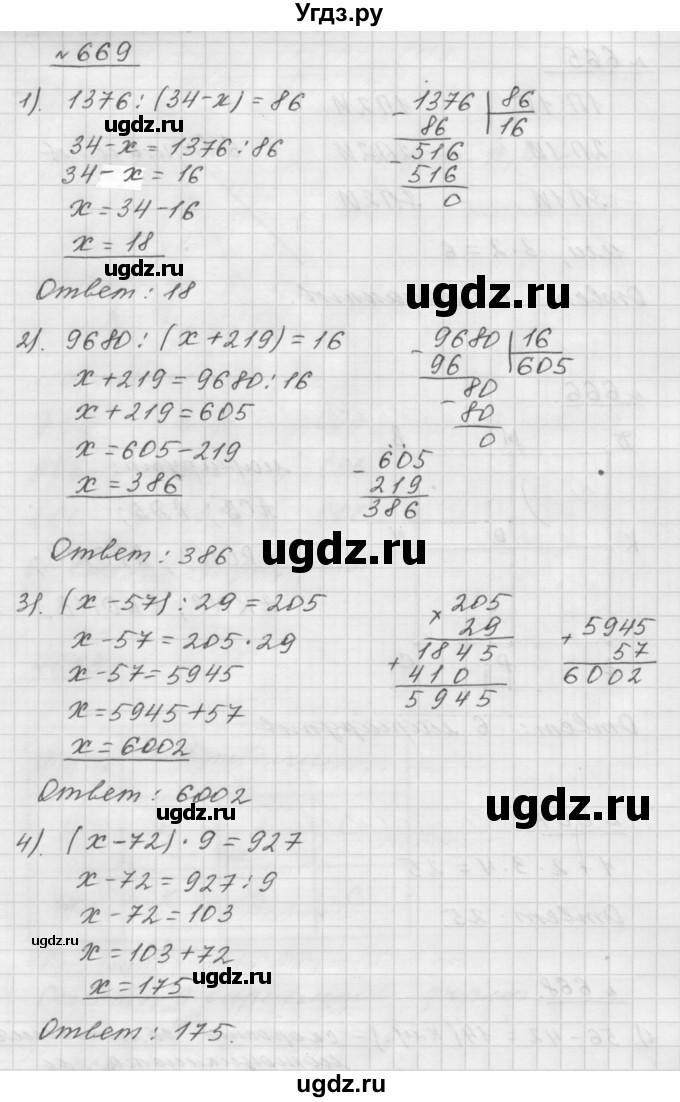 Угдз.ру
№669
1). 1376 : (34-x) = 86
34-x = 1376 : 86
34-x = 16
x = 34-16
x = 18
Ответ : 18
- 1376 | 86
86 | 16
- 516
516
0
2). 9680 : (x+219) = 16
x+219 = 9680 : 16
x+219 = 605
x = 605-219
x = 386
Ответ : 386
- 9680 | 16
96 | 605
- 80
80
0
- 605
219
386
3). (x-57) : 29 = 205
x-57 = 205 · 29
x-57 = 5945
x = 5945+57
x = 6002
Ответ : 6002
× 205
29
+ 1845
410
5945
+ 5945
57
6002
4). (x-72) · 9 = 927
x-72 = 927 : 9
x-72 = 103
x = 103+72
x = 175
Ответ : 175.
ugdz.ru
ugdz.ru
ugdz.ru
ugdz.ru
ugdz.ru
ugdz.ru
ugdz.ru
ugdz.ru
ugdz.ru
ugdz.ru
ugdz.ru
ugdz.ru